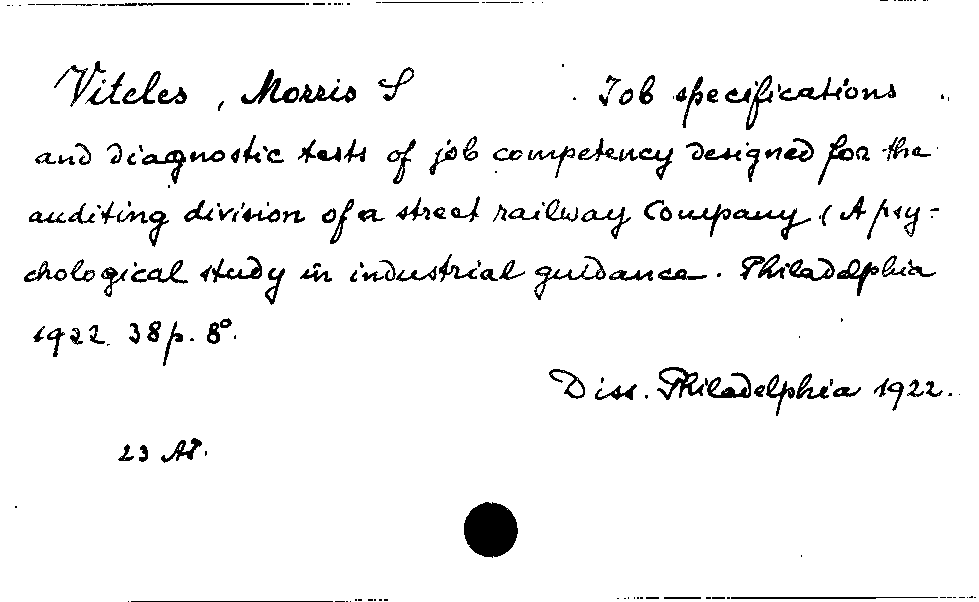 Viteles, Morris S Job specifications
and diagnostic tests of job competency designed for the
auditing division of a street railway Company (A psy-
chological study in industrial guidance. Philadelphia
1922. 38 p. 8°.
Diss. Philadelphia 1922.
23 AT.